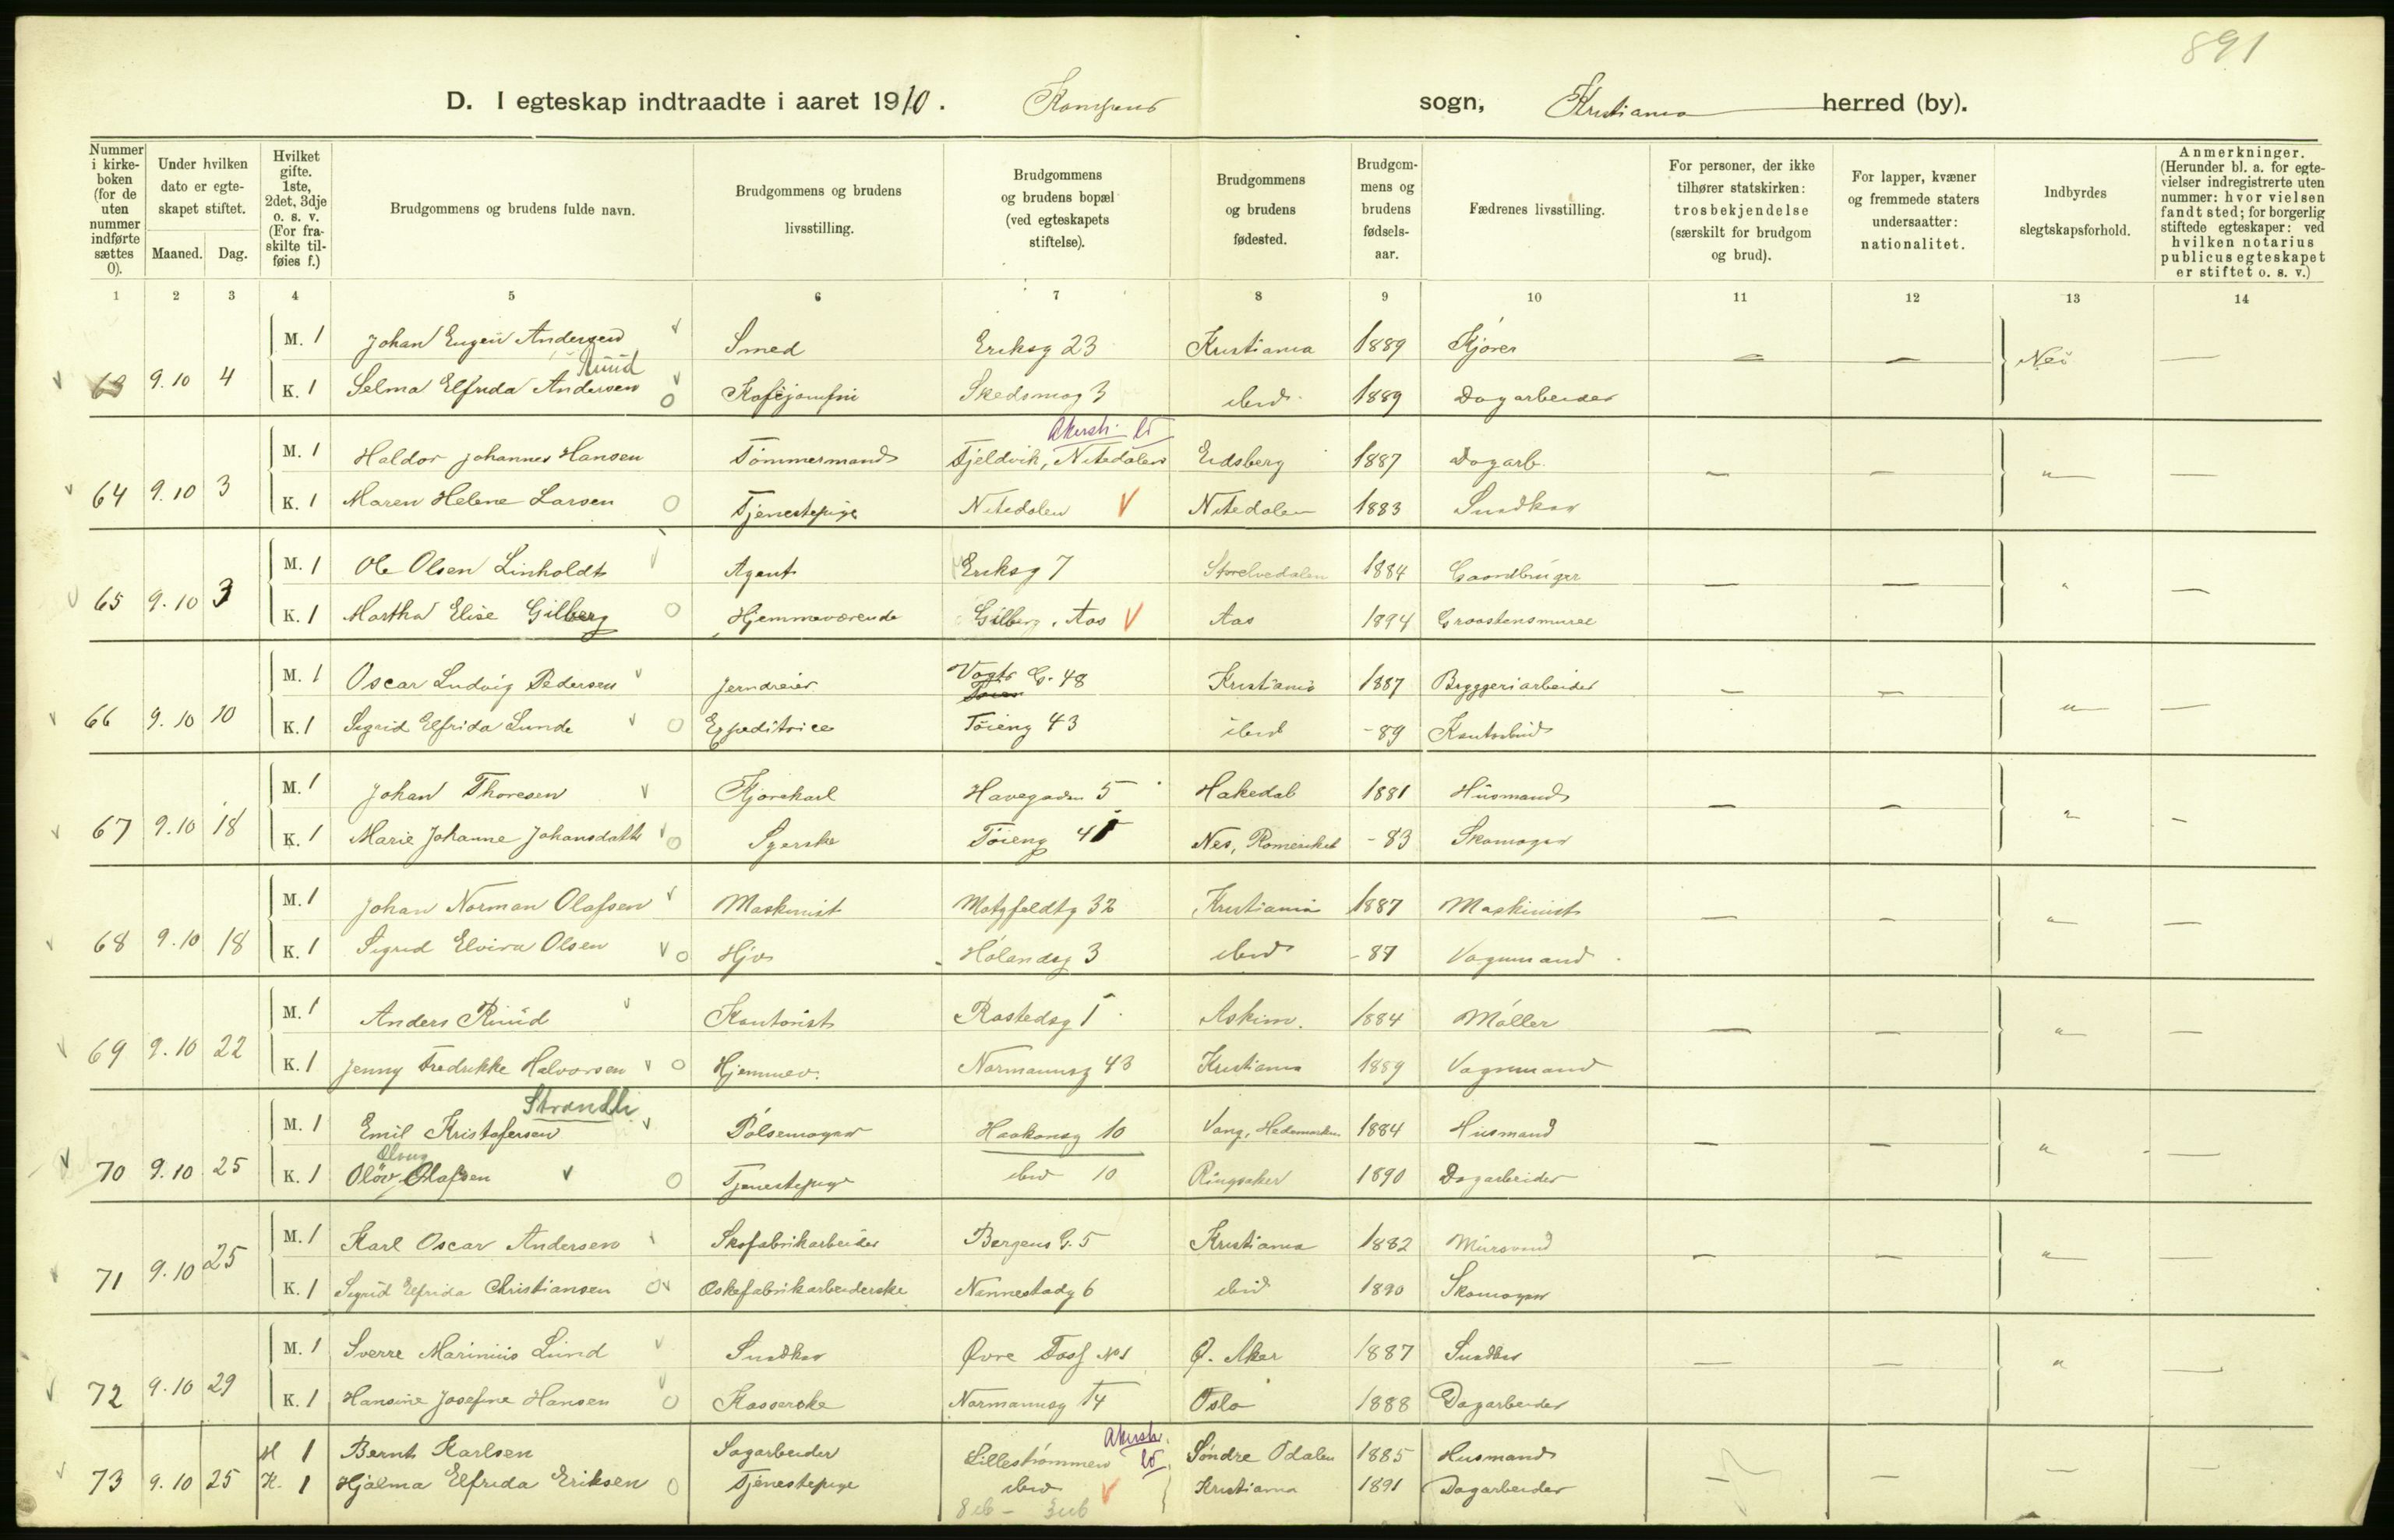 891
D. I egteskap indtraadte i aaret 1910. Kampens sogn, Kristiania herred (by).
Nummer i kirkeboken (for de uten nummer indførte sættes 0).
Under hvilken dato er egteskapet stiftet.
Maaned. Dag.
Hvilket gifte. 1ste, 2det, 3dje o. s. v. (For fraskilte tilføies f.)
Brudgommens og brudens fulde navn.
Brudgommens og brudens livsstilling.
Brudgommens og brudens bopæl (ved egteskapets stiftelse).
Brudgommens og brudens fødested.
Brudgommens og brudens fødselsaar.
Fædrenes livsstilling.
For personer, der ikke tilhører statskirken: trosbekjendelse (særskilt for brudgom og brud).
For lapper, kvæner og fremmede staters undersaatter: nationalitet.
Indbyrdes slegtskapsforhold.
Anmerkninger. (Herunder bl. a. for egtevielser indregistrerte uten nummer: hvor vielsen fandt sted; for borgerlig stiftede egteskaper: ved hvilken notarius publicus egteskapet er stiftet o. s. v.)
1 2 3 4 5 6 7 8 9 10 11 12 13 14
M. 1 Johan Eugen Andersen Smed Eriksg 23 Kristiania 1889 Kjører
Ruud
63 9.10 4 — — Nei —
K. 1 Selma Elfrida Andersen O Kaféjomfru Skedsmog 3 ibid 1889 Dagarbeider
Akersh. lv
M. 1 Haldor Johannes Hansen Tømmermand Fjeldvik, Nitedalen Eidsberg 1887 Dagarb.
64 9.10 3 — — " —
K. 1 Maren Helene Larsen O Tjenestepige Nitedalen V Nitedalen 1883 Snedker
M. 1 Ole Olsen Linholdt Agent Eriksg 7 Storelvedalen 1884 Gaardbruger
65 9.10 3 — — " —
K. 1 Martha Elise Gilberg O Hjemmeværende Gilberg, Aas V Aas 1894 Graastensmurer
M. 1 Oscar Ludvig Pedersen Jerndreier Vogts G. 48 Kristiania 1887 Bryggeriarbeider
66 9.10 10 — — " —
K. 1 Sigrid Elfrida Lunde O Expeditrice Tøieng 43 ibid -89 Kontorbud
M. 1 Johan Thoresen Kjørekarl Havegaden 5 Hakedal 1881 Husmand
67 9.10 18 — — " —
K. 1 Marie Johanne Johansdatter O Syerske Tøieng 45 Nes, Romeriket -83 Skomager
M. 1 Johan Norman Olafsen Maskinist Motzfeldtg 32 Kristiania 1887 Maskinist
68 9.10 18 — — " —
K. 1 Sigrid Elvira Olsen O Hjv Hølandsg 3 ibid -87 Vognmand
M. 1 Anders Ruud Kontorist Rastedsg 1 Askim. 1884 Møller
69 9.10 22 — — " —
K. 1 Jenny Fredrikke Halvorsen O Hjemmev. Normannsg 43 Kristiania 1889 Vognmand
Strandli
M. 1 Emil Kristofersen Pølsemager Haakonsg 10 Vang, Hedemarken 1884 Husmand
Olaug
70 9.10 25 — — " —
K. 1 Oløv Olafsen O Tjenestepige ibid 10 Ringsaker 1890 Dagarbeider
M. 1 Karl Oscar Andersen Skofabrikarbeider Bergens G. 5 Kristiania 1882 Mursvend
71 9.10 25 — — " —
K. 1 Sigrid Elfrida Christiansen O Eskefabrikarbeiderske Nannestadg 6 ibid 1890 Skomager
M. 1 Sverre Marinius Lund Snedker Øvre Foss No 1 Ø. Aker 1887 Snedker
72 9.10 29 — — " —
K. 1 Hansine Josefine Hansen O Kasserske Normannsg 14 Oslo 1888 Dagarbeider
Akersh. lv
M 1 Bernt Karlsen Sagarbeider Lillestrømmen Søndre Odalen 1885 Husmand
73 9.10 25 — — — —
K. 1 Hjalma Elfrida Eriksen O Tjenestepige ibid V Kristiania 1891 Dagarbeider